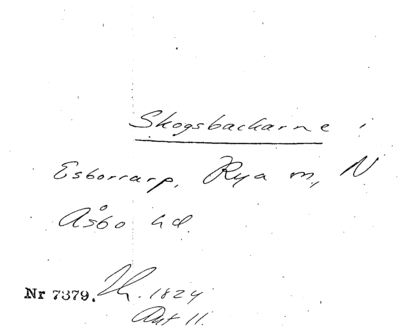 Skogsbackarne i
Esborrarp, Rya sn, N
Åsbo hd.
Nr 7379. 1824
Akt 11.